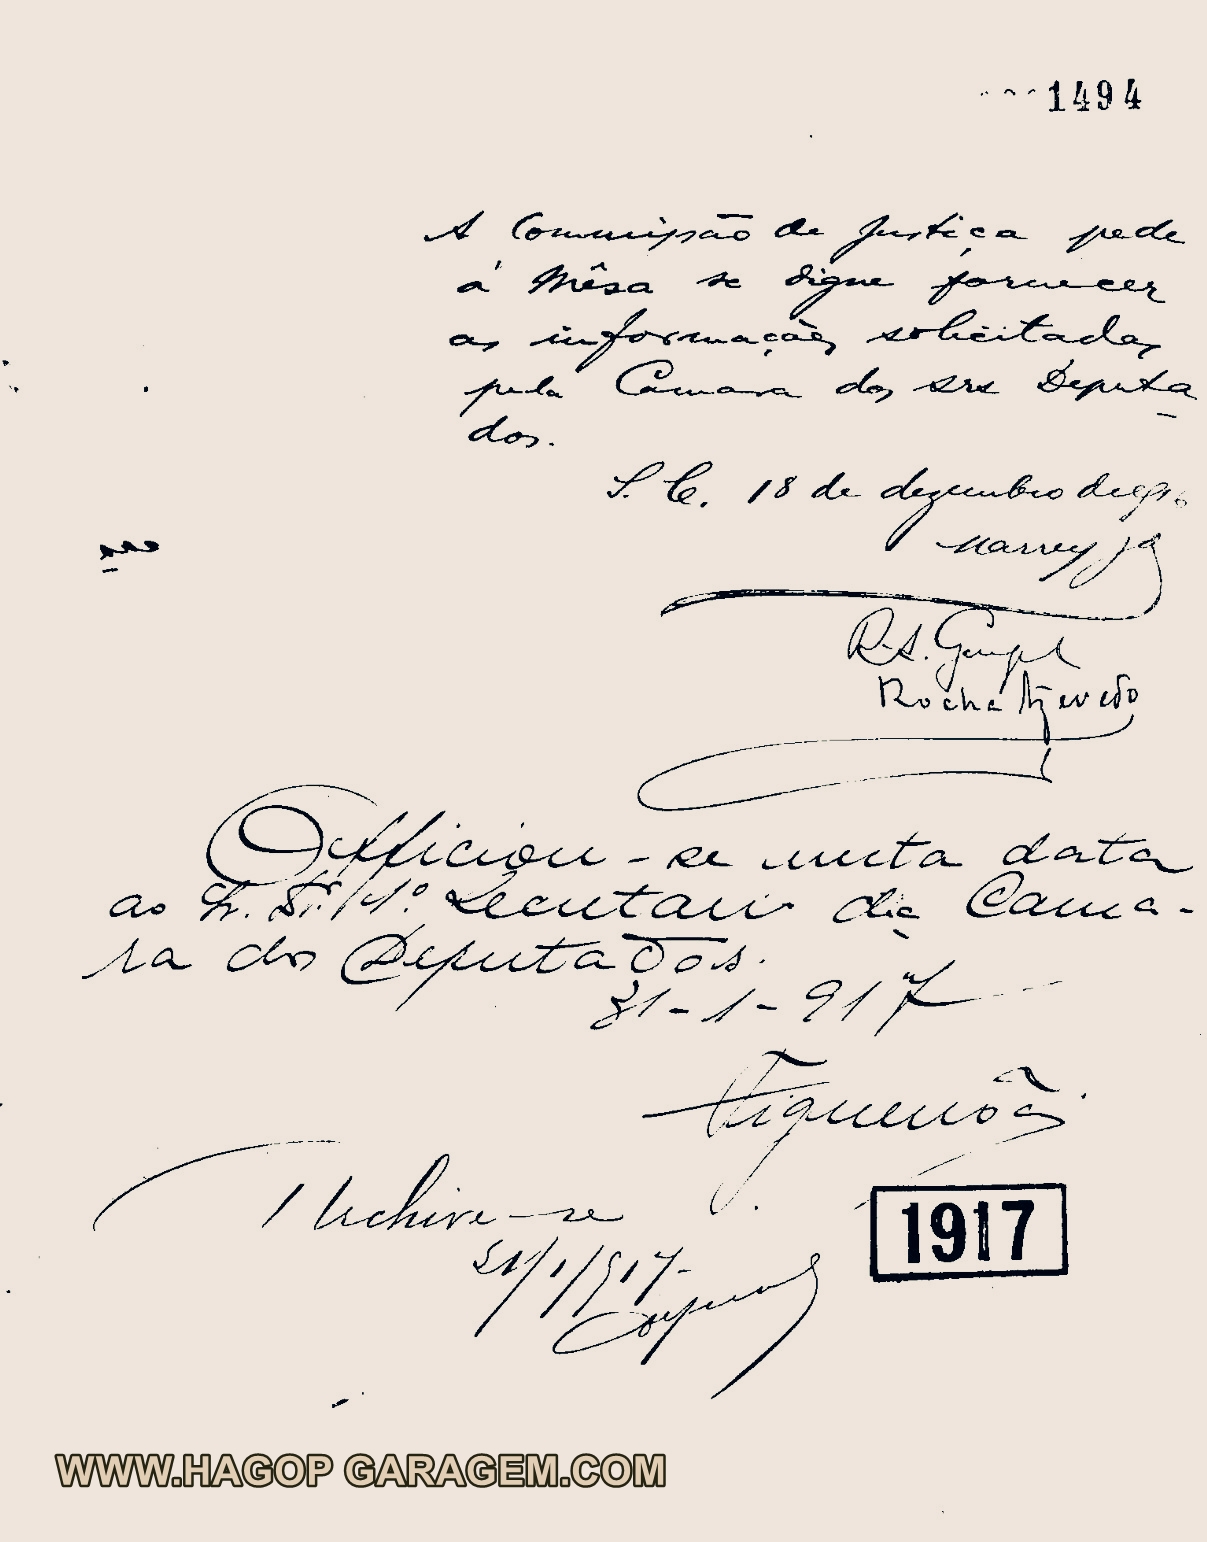 1494
A Commissão de Justiça pede
á Mêsa se digne fornecer
as informações solicitadas
pela Camara dos srs Deputa
dos.
S. C. 18 de dezembro de 916
Marrey Jor
R. A. Gurgel
Rocha Azevedo
Officiou-se nesta data
ao Sr. Dr. 1º. Secretario da Cama-
ra dos Deputados.
31-1-917
Archive-se
31/1/917-
1917
WWW.HAGOP GARAGEM.COM